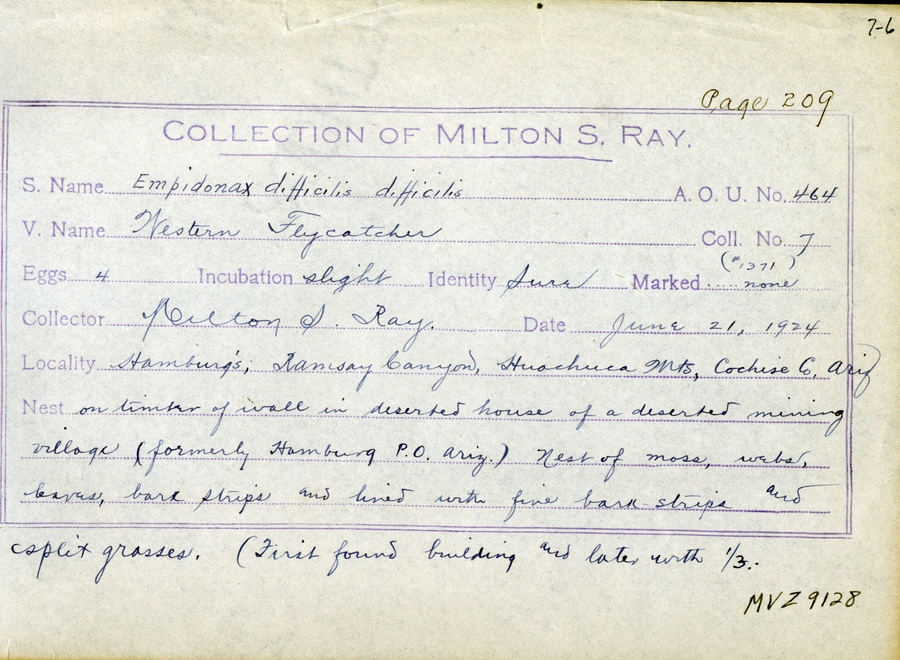 7-6
Page 209
COLLECTION OF MILTON S. RAY.
S. Name Empidonax difficilis difficilis A. O. U. No. 464
V. Name Western Flycatcher Coll. No. 7
(#1371)
Eggs 4 Incubation slight Identity Sure Marked none
Collector Milton S. Ray. Date June 21, 1924
Locality Hamburg's, Ramsay Canyon, Huachuca Mts, Cochise C, Ariz
Nest on timber of wall in deserted house of a deserted mining
village (formerly Hamburg P.O. Ariz.) Nest of moss, webs,
leaves, bark strips and lined with fine bark-strips and
split grasses. (First found building and later with 1/3.
MVZ 9128